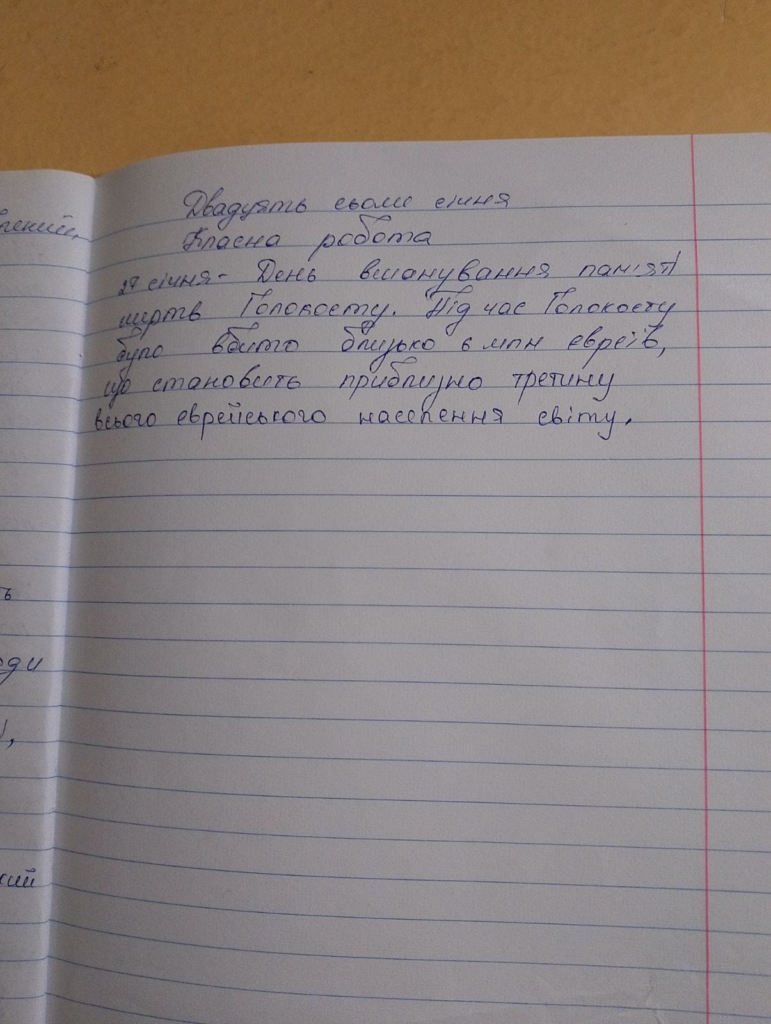 Двадцять сьоме січня
Класна робота
27 січня - День вшанування памʼяті
жертв Голокосту. Під час Голокосту
було вбито близько 6 млн євреїв,
що становить приблизно третину
всього єврейського населення світу.
ь
ди
,
кий